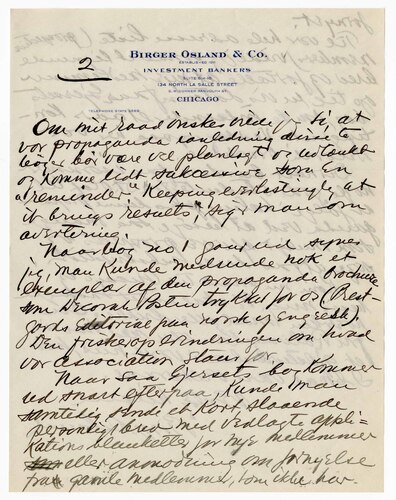 2
BIRGER OSLAND & CO.
INVESTMENT BANKERS
134 NORTH LA SALLE STREET
CHICAGO
Om mit raad ønskes vilde jeg si, at
vor propaganda i anledning disse to
bøger bør være vel planlagt og udtænkt
og komme lidt suksessive som en
"reminder". "Keeping everlastingly at
it brings results", siger man om
avertering.
Naar bog no 1 gaar ud synes
jeg, man kunde medsende nok et
exemplar af den propaganda brochure
som Decorah Posten trykker for os (Prest-
gards Editorial paa norsk og engelsk).
Den frisker op erindringen om hvad
vor association staar for.
Naar saa Gjersets bog kommer
ud snart efter paa, kunde man
samtidig sende et kort, slaaende
personlig brev med vedlagte appli-
kations blanketter for nye medlemmer
eller anmodning om fornyelse
fra gamle medlemmer, som ikke har